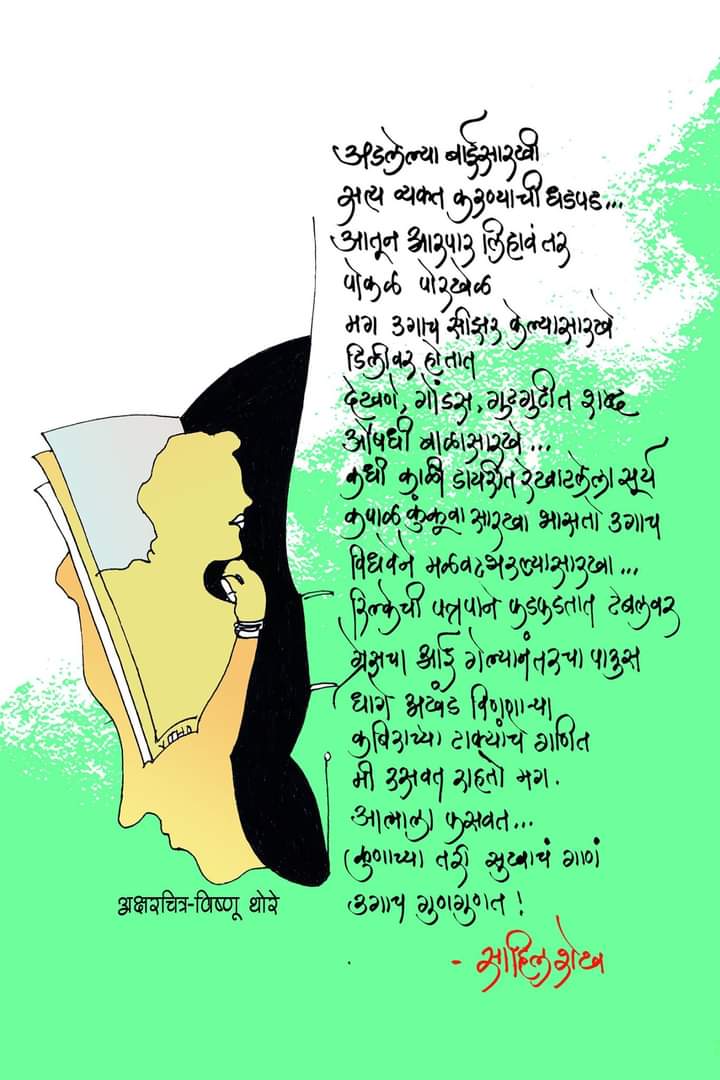 अडलेल्या बाईसारखी
सत्य व्यक्त करण्याची धडपड...
आतून आरपार लिहावं तर
पोकळ पोरखेळ
मग उगाच सीझर केल्यासारखे
डिलीवर होतात
देखणे, गोंडस, गुटगुटीत शब्द
औषधी बाळासारखे...
कधी काळी डायरीत रेखाटलेला सूर्य
कपाळ कुंकूवा सारखा भासतो उगाच
विधवेने मळवटभरल्यासारखा...
रिल्केची पत्रपाने फडफडतात टेबलवर
ग्रेसचा आई गेल्यानंतरचा पाऊस
धागे अखंड विणणाऱ्या
कबिराच्या टाक्यांचे गणित
मी उसवत राहतो मग.
आत्माला फसवत...
कूणाच्या तरी सुखाचं गाणं
उगाच गुणगुणत !
- साहिल शेख
अक्षरचित्र-विष्णू थोरे